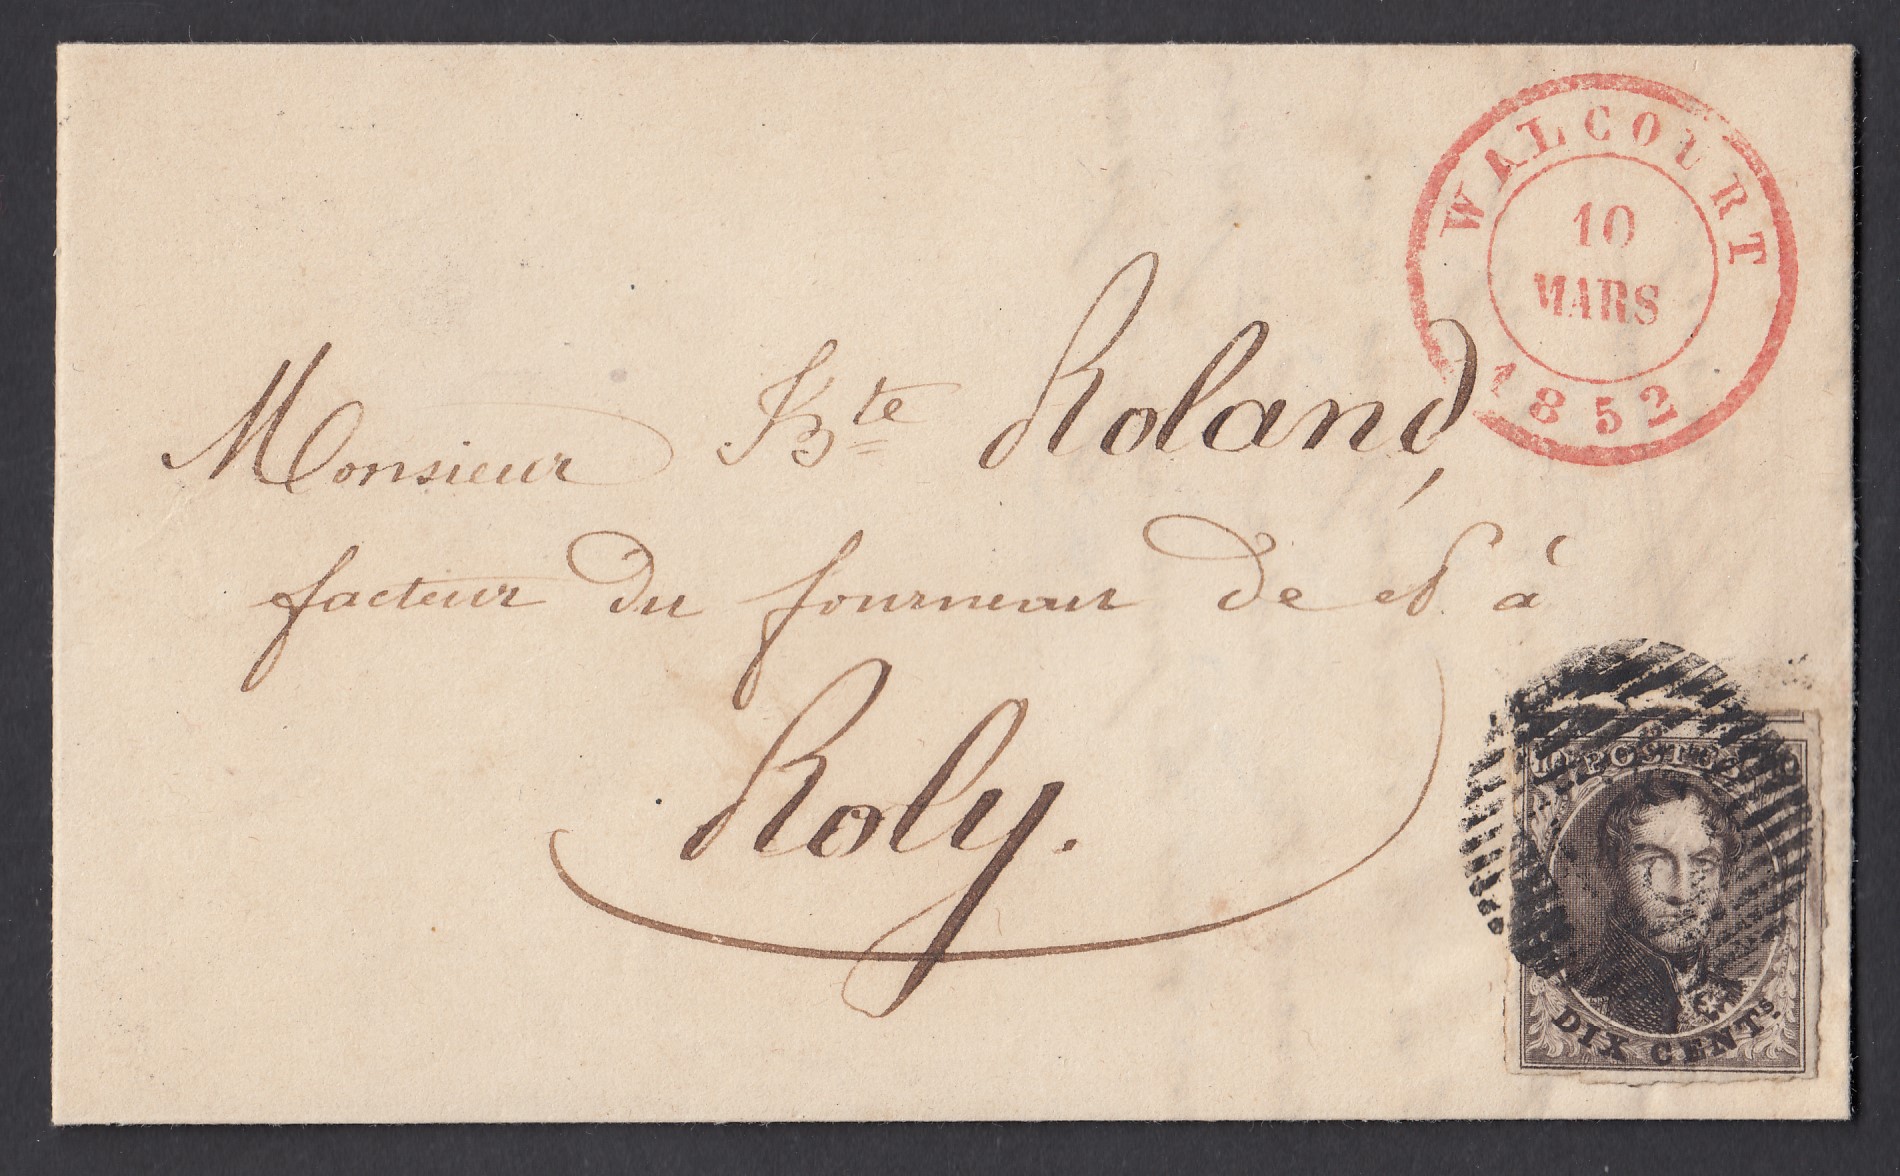 WALCOURT
10
MARS
1852
Monsieur Bte Roland,
facteur du fourneau de et à
Roly.
10 POSTES 10
DIX CENTS.